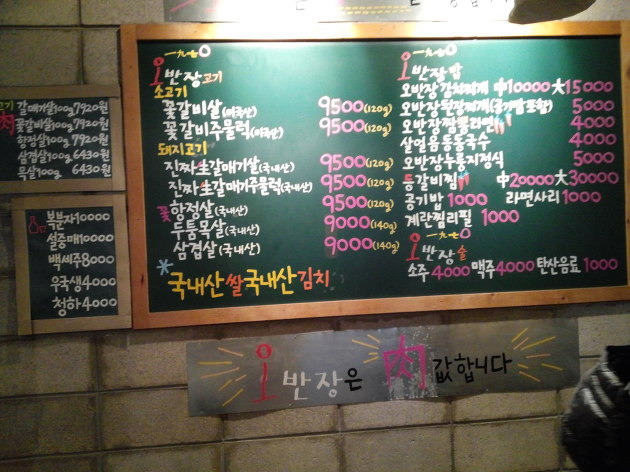 갈매기살100g 7920원
꽃갈비살100g 7920원
항정살100g 7920원
삼겹살100g 6430원
목살100g 6430원
복분자10000
설중매10000
백세주8000
우국생4000
청하4000
오반장고기
소고기
꽃갈비살(미국산) 9500(120g)
꽃갈비주물럭(미국산) 9500(120g)
돼지고기
진짜生갈매기살(국내산) 9500(120g)
진짜生갈매기주물럭(국내산) 9500(120g)
꽃항정살(국내산) 9500(120g)
두툼목살(국내산) 9000(140g)
삼겹살(국내산) 9000(140g)
*국내산쌀국내산김치
오반장밥
오반장김치찌개 中10000 大15000
오반장된장찌개(공기밥포함) 5000
오반장짬뽕라면 4000
4000
오반장누룽지정식 5000
등갈비찜 中20000 大30000
공기밥 1000 라면사리 1000
계란찜리필 1000
오반장술
소주 4000 맥주 4000 탄산음료 1000
오반장은 肉값합니다